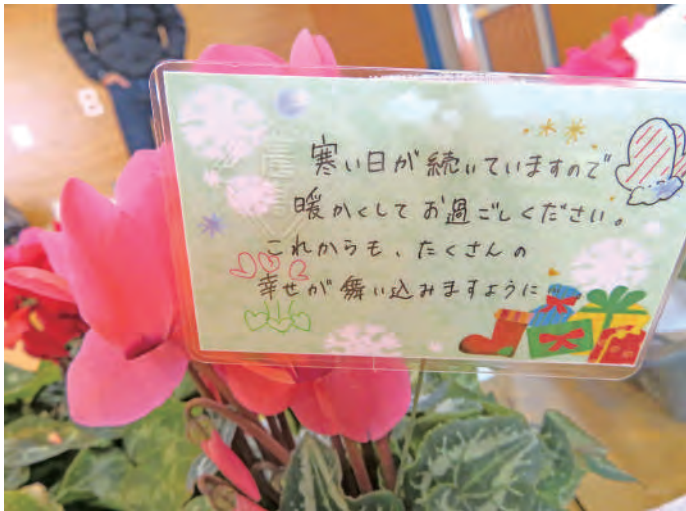 寒い日が続いていますので
暖かくしてお過ごしください。
これからも、たくさんの
幸せが舞い込みますように